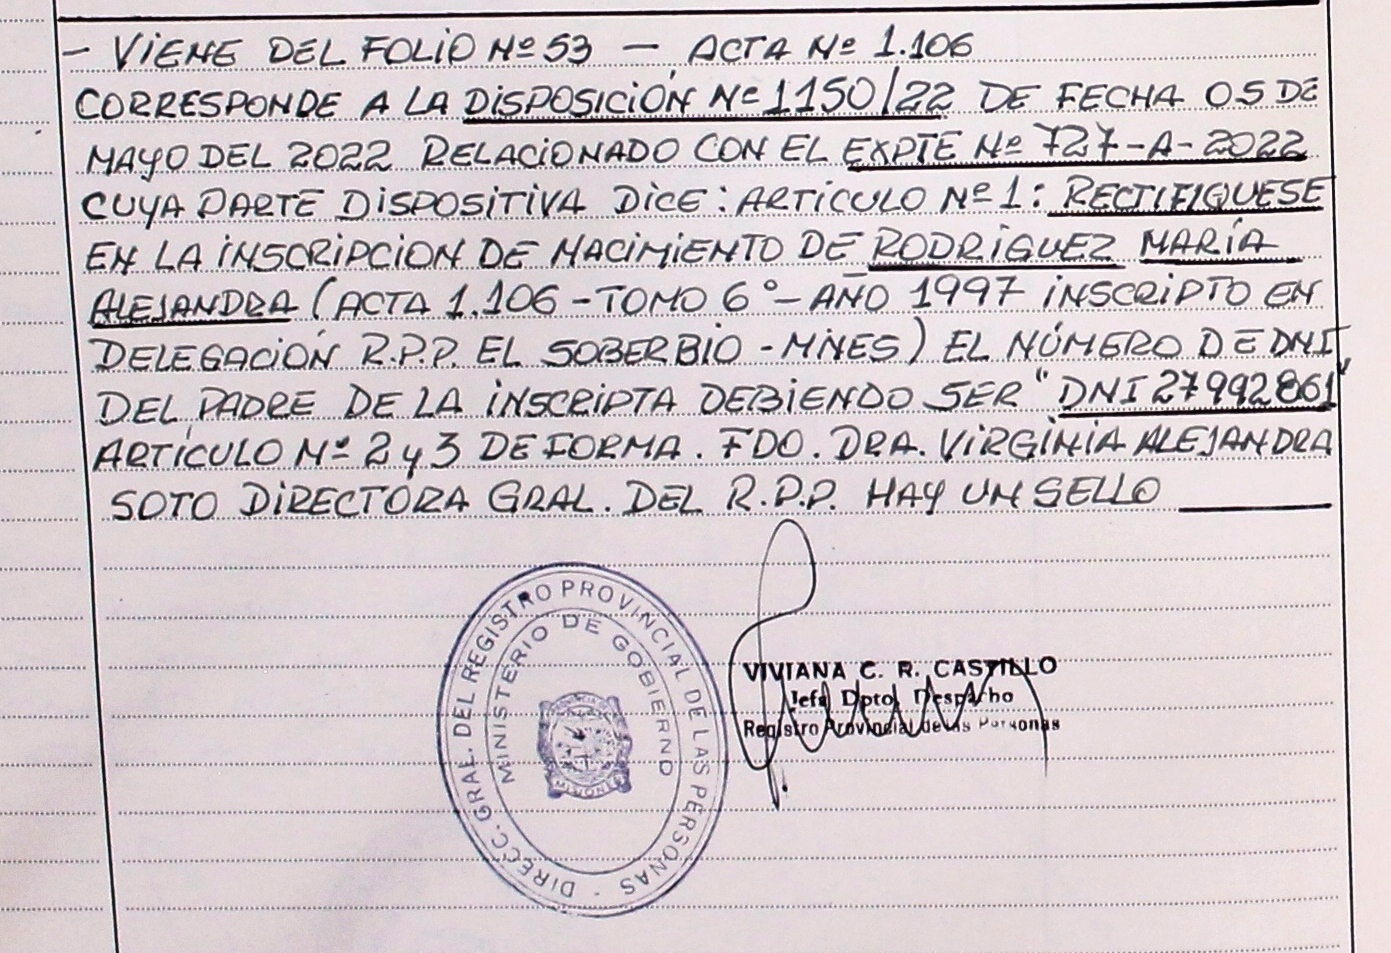 - VIENE DEL FOLIO Nº 53 — ACTA Nº 1.106
CORRESPONDE A LA DISPOSICIÓN Nº 1150/22 DE FECHA 05 DE
MAYO DEL 2022 RELACIONADO CON EL EXPTE Nº 727-A-2022
CUYA PARTE DISPOSITIVA DICE: ARTICULO Nº 1: RECTIFIQUESE
EN LA INSCRIPCION DE NACIMIENTO DE RODRÍGUEZ MARÍA
ALEJANDRA (ACTA 1.106 - TOMO 6º - AÑO 1997 INSCRIPTO EN
DELEGACIÓN R.P.P. EL SOBERBIO - MNES) EL NÚMERO DE DNI
DEL PADRE DE LA INSCRIPTA DEBIENDO SER "DNI 27992861"
ARTÍCULO Nº 2 y 3 DE FORMA. FDO. DRA. VIRGINIA ALEJANDRA
SOTO DIRECTORA GRAL. DEL R.P.P. HAY UN SELLO
DIRECC. GRAL. DEL REGISTRO PROVINCIAL DE LAS PERSONAS -
MINISTERIO DE GOBIERNO
MISIONES
VIVIANA C. R. CASTILLO
Jefa Dpto. Despacho
Registro Provincial de las Personas